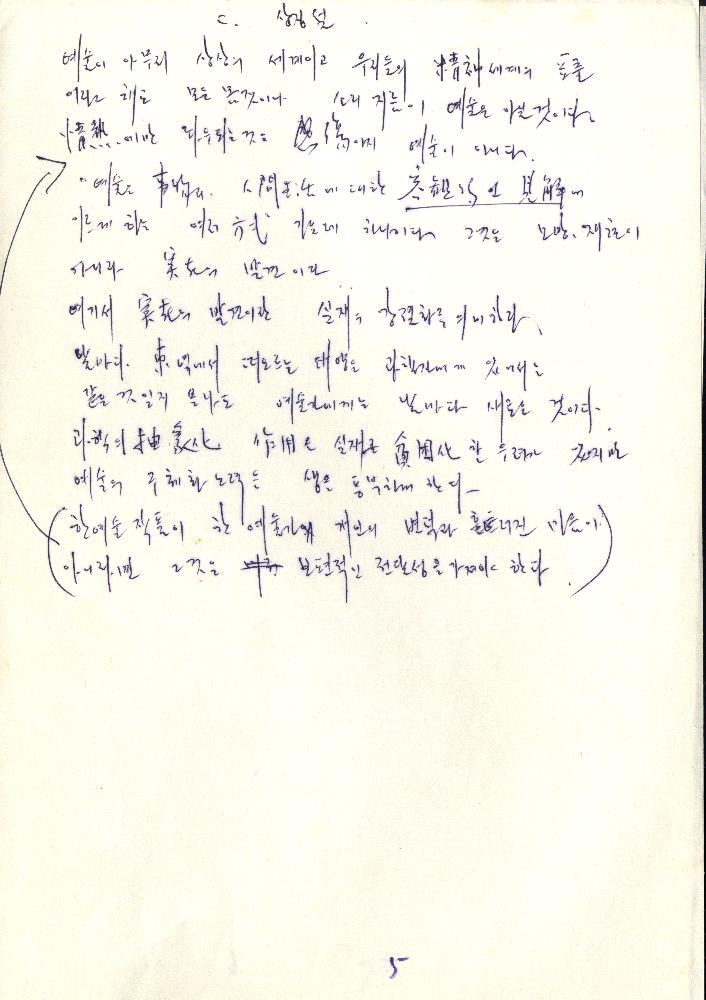 C. 상징설
예술이 아무리 상상의 세계이고 우리들의 精神세계의 표출
이라고 해도 모든 몸짓이나 소리 지름이 예술은 아닐 것이다.
情熱에만 좌우되는 것은 감상이지 예술이 아니다.
"예술은 事物과 人間生活에 대한 客觀的인 見解에
이르게 하는 여러 方式 가운데 하나이다. 그것은 모방, 재현이
아니라 実在의 발견이다
여기서 実在의 발견이란 실재의 강렬화를 의미한다.
날마다 東녘에서 떠오르는 태양은 과학자에게 있어서는
같은 것일지 몰라도 예술가에게는 날마다 새로운 것이다.
과학의 抽象化 作用은 실재를 貧困化 할 우려가 있지만
예술의 구체화 노력은 생을 풍부하게 한다.
(한 예술작품이 한 예술가의 개인의 변덕과 흐트러진 마음이
아니라면 그것은 보편적인 전달성을 가져야 한다)
5